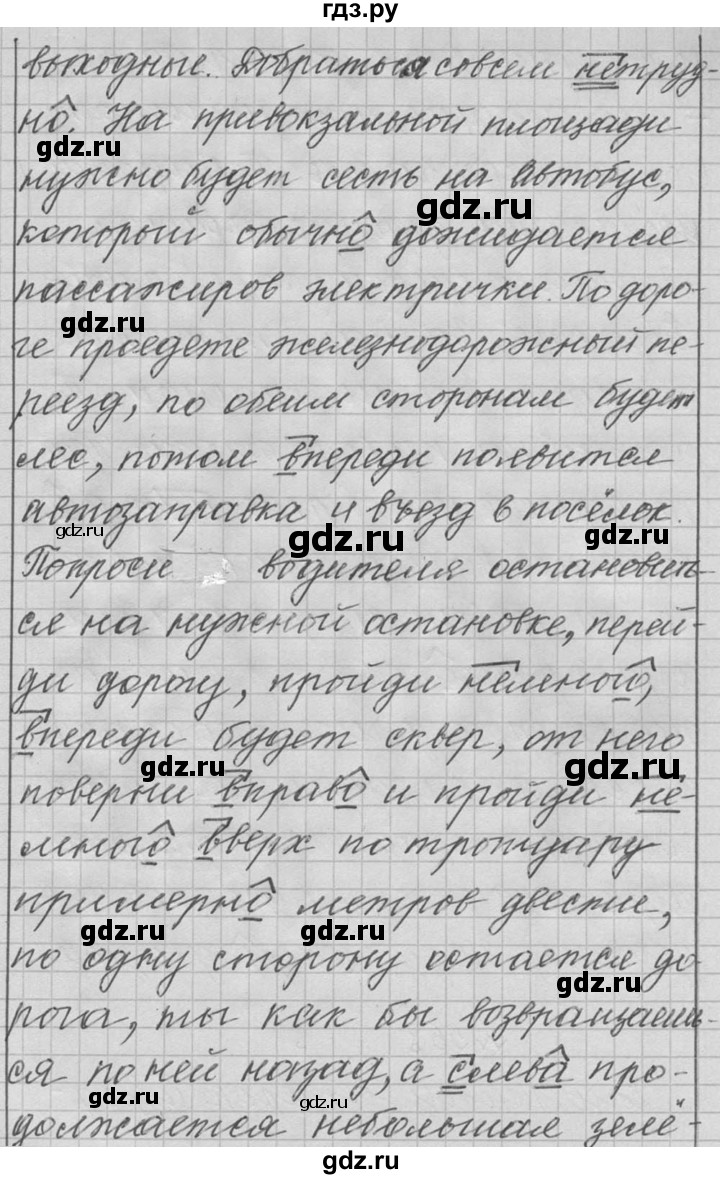 гдз.ру
выходные. Добраться совсем нетруд-
но. На привокзальной площади
gdz.ru
нужно будет сесть на автобус,
gdz.ru
который обычно дожидается
пассажиров электрички. По доро-
gdz.ru
ге проедете железнодорожный пе-
реезд, по обеим сторонам будет
gdz.ru
лес, потом впереди появится
автозаправка и въезд в посёлок.
gdz.ru
gdz.ru
gdz.ru
Попроси водителя остановить-
ся на нужной остановке, перей-
gdz.ru
ди дорогу, пройди немного,
впереди будет сквер, от него
gdz.ru
gdz.ru
поверни вправо и пройди не-
много вверх по тротуару
примерно метров двести,
gdz.ru
gdz.ru
по одну сторону остается до-
gdz.ru
рога, ты как бы возвращаешь-
ся по ней назад, а слева про-
gdz.ru
gdz.ru
должается небольшая зелё-
gdz.ru